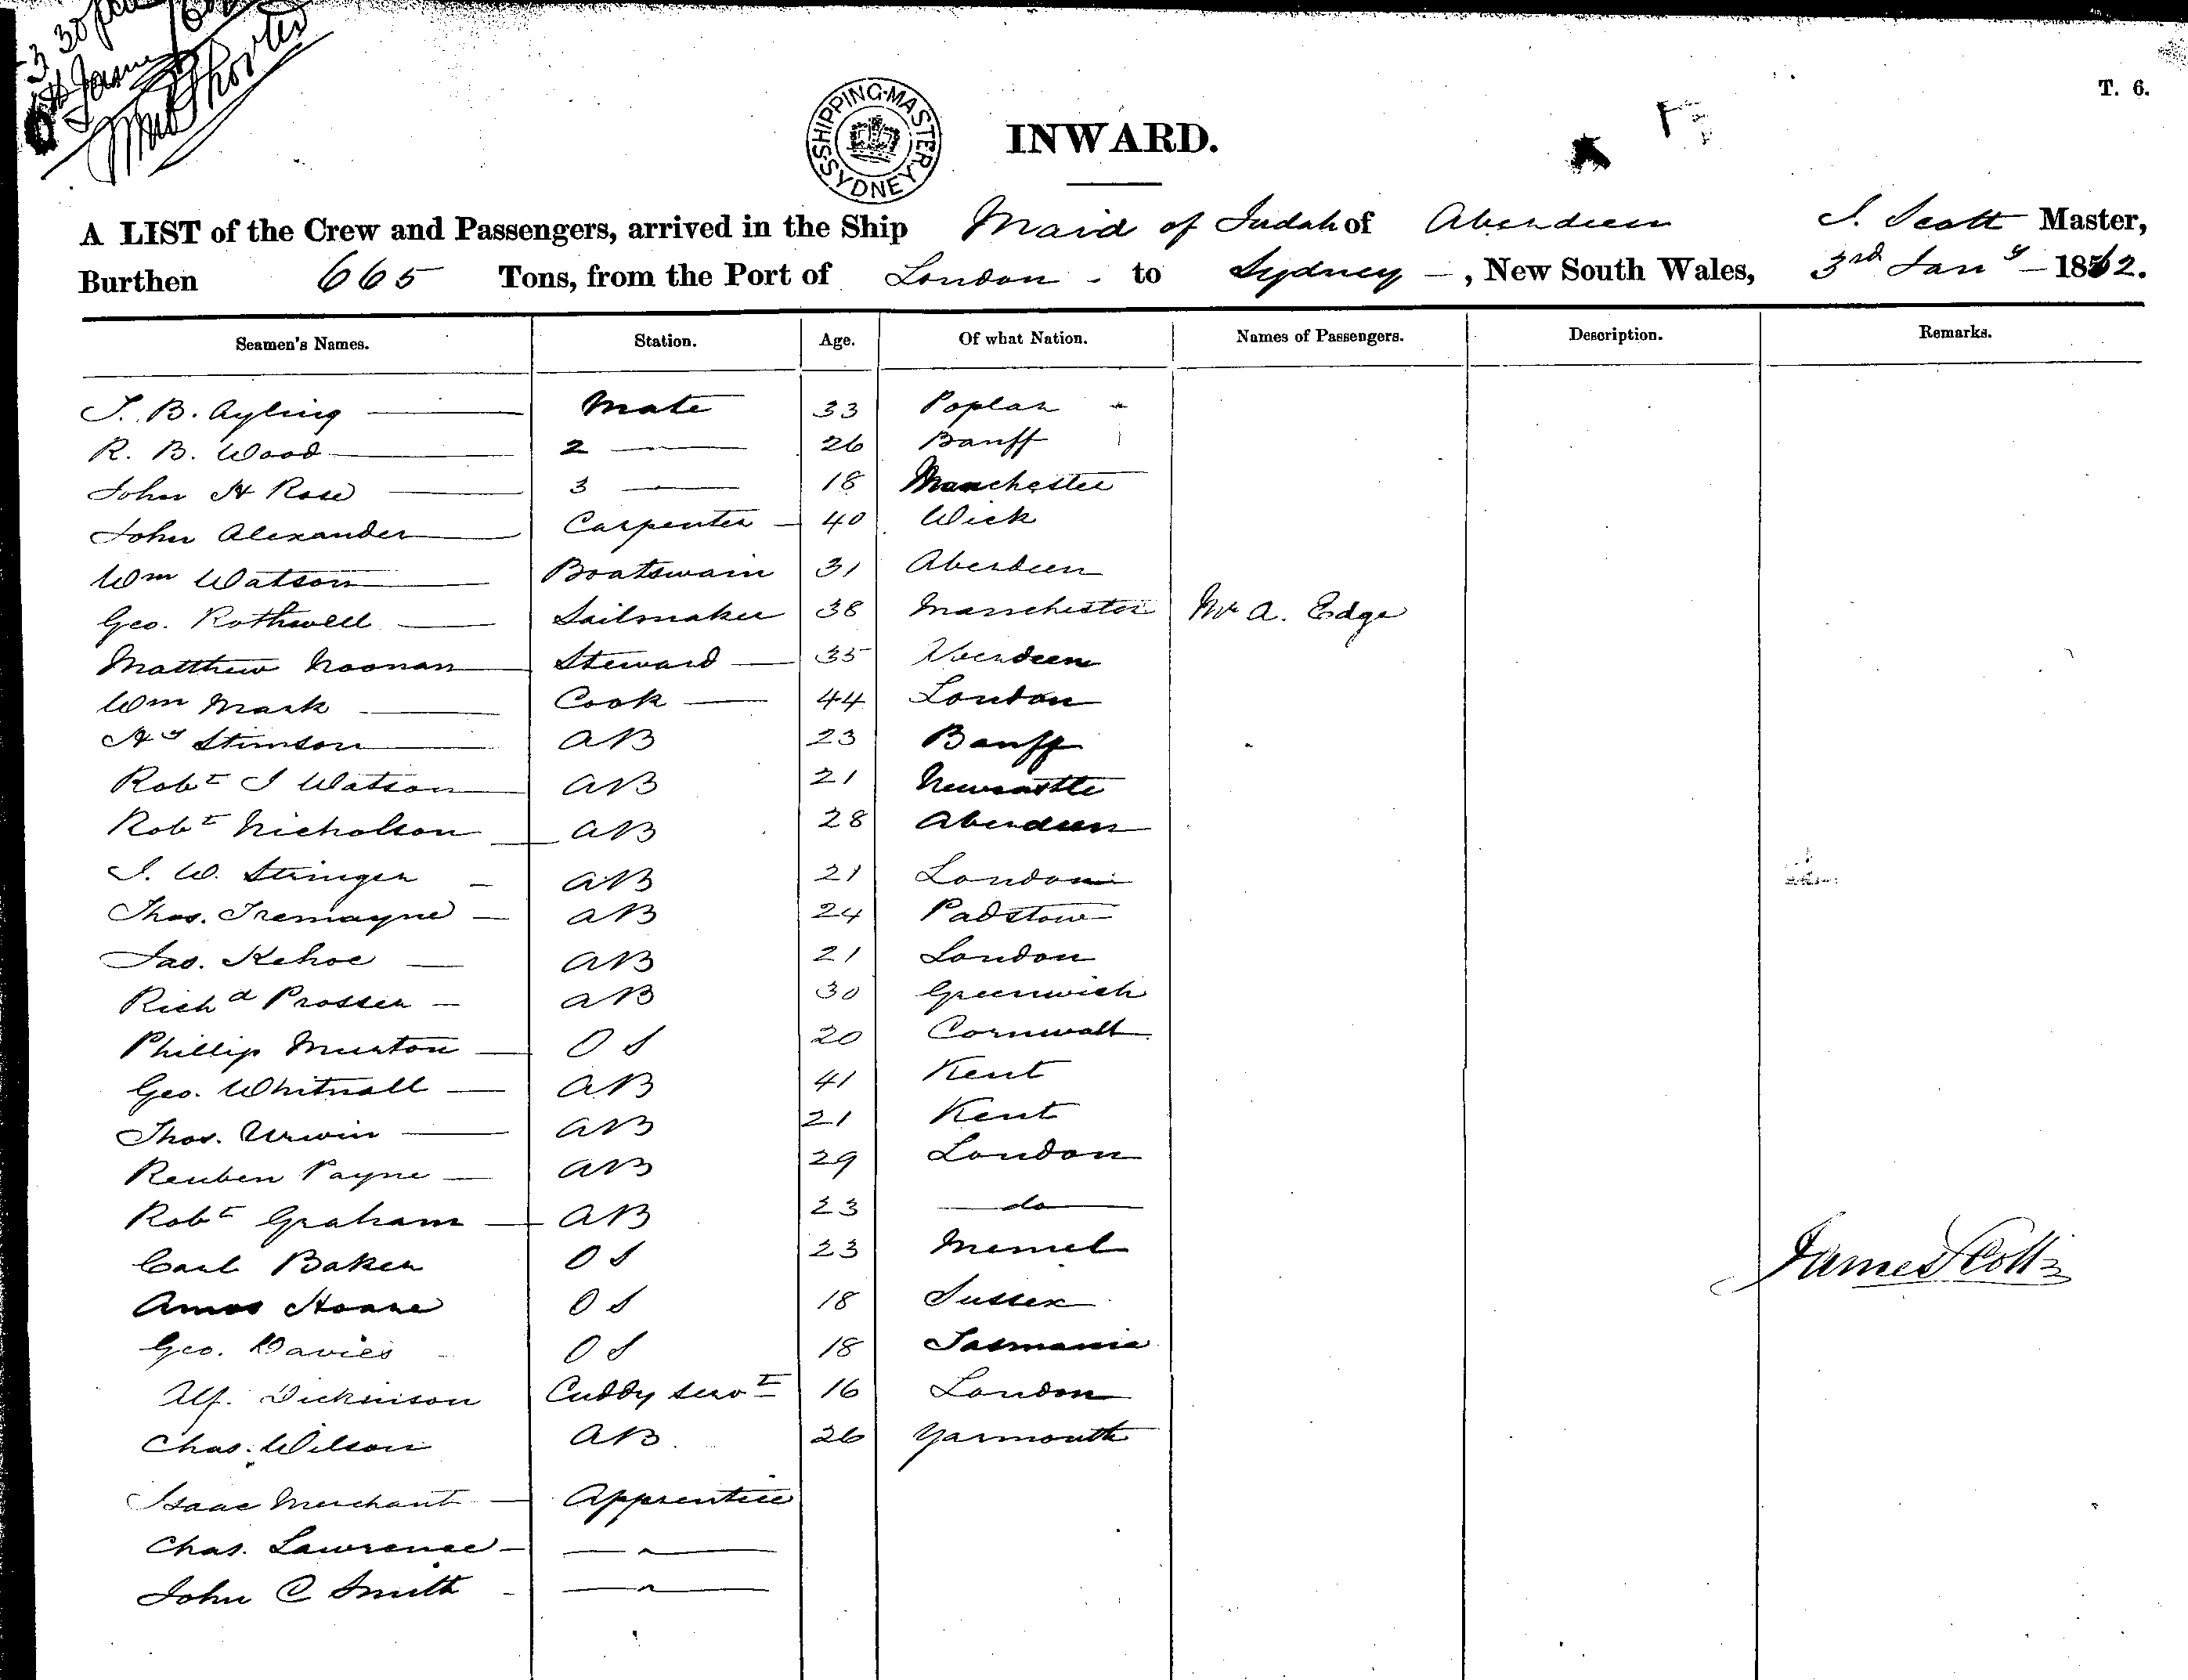 3 30 pm
6th Jany 1862
SHIPPING-MASTER SYDNEY
T. 6.
INWARD.
A LIST of the Crew and Passengers, arrived in the Ship Maid of Judah of Aberdeen J. Scott Master,
Burthen 665 Tons, from the Port of London - to Sydney -, New South Wales, 3rd Jany - 1862.
Seamen's Names. Station. Age. Of what Nation. Names of Passengers. Description. Remarks.
J. B. Ayling Mate 33 Poplar
R. B. Wood 2 — 26 Banff
John H Rose 3 — 18 Manchester
John Alexander Carpenter 40 Wick
Wm Watson Boatswain 31 Aberdeen
Geo. Rothwell Sailmaker 38 Manchester Mr A. Edge
Matthew Noonan Steward 35 Aberdeen
Wm Mark Cook 44 London
Hy Stimson AB 23 Banff
Robt J Watson AB 21 Newcastle
Robt Nicholson AB 28 Aberdeen
J. W. Stringer AB 21 London
Thos. Tremayne AB 24 Padstow
Jas. Kehoe AB 21 London
Richd Prosser AB 30 Greenwich
Phillip Murton OS 20 Cornwall
Geo. Whitnall AB 41 Kent
Thos. Urwin AB 21 Kent
Reuben Payne AB 29 London
Robt Graham AB 23 do
Carl Baker OS 23 Memel
Amos Hoare OS 18 Sussex
James Scott
Geo. Davies OS 18 Tasmania
Alf. Dickinson Cuddy servt 16 London
Chas. Wilson AB 26 Yarmouth
Isaac Merchant Apprentice
Chas. Lawrence — " —
John C Smith — " —